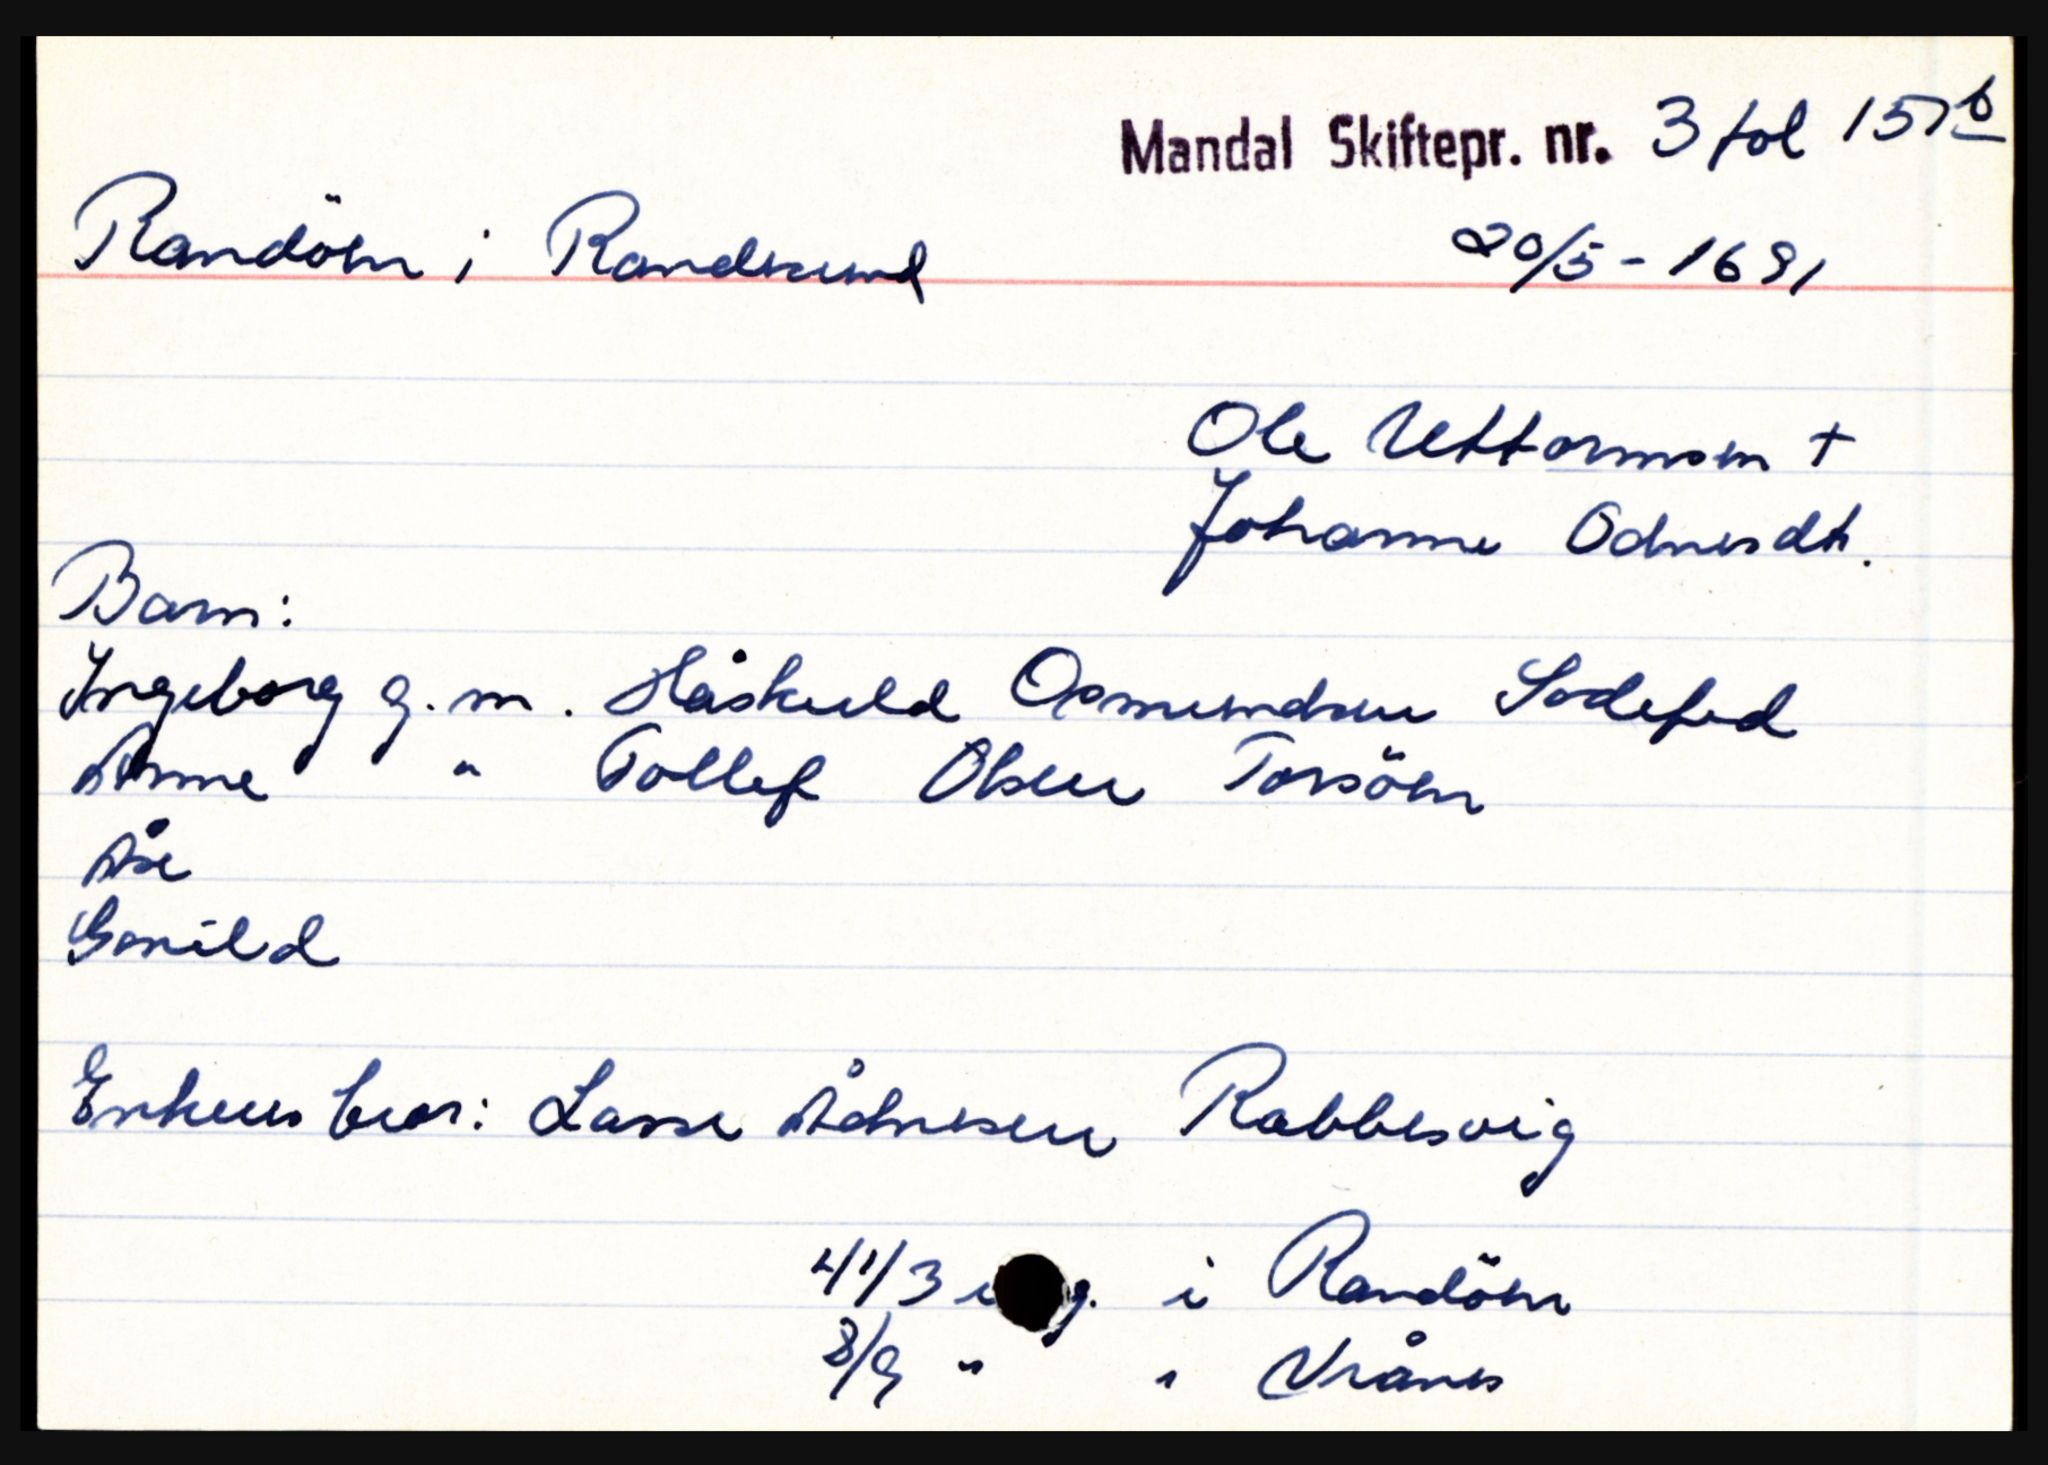 Mandal Skiftepr. nr. 3 fol 157b
Randöen i Randesund 20/5 - 1691
Ole Uttormsen +
Johanne Odnesdt.
Barn:
Ingeborg g. m. Håskuld Osmundsen Sodefed
Anne " Tollef Olsen Torsöen
Åse
Gonild
Enkens bror: Lasse Ådnesen Rabbesvig
4 1/3 i Randöen
8/9 " " Vrånes